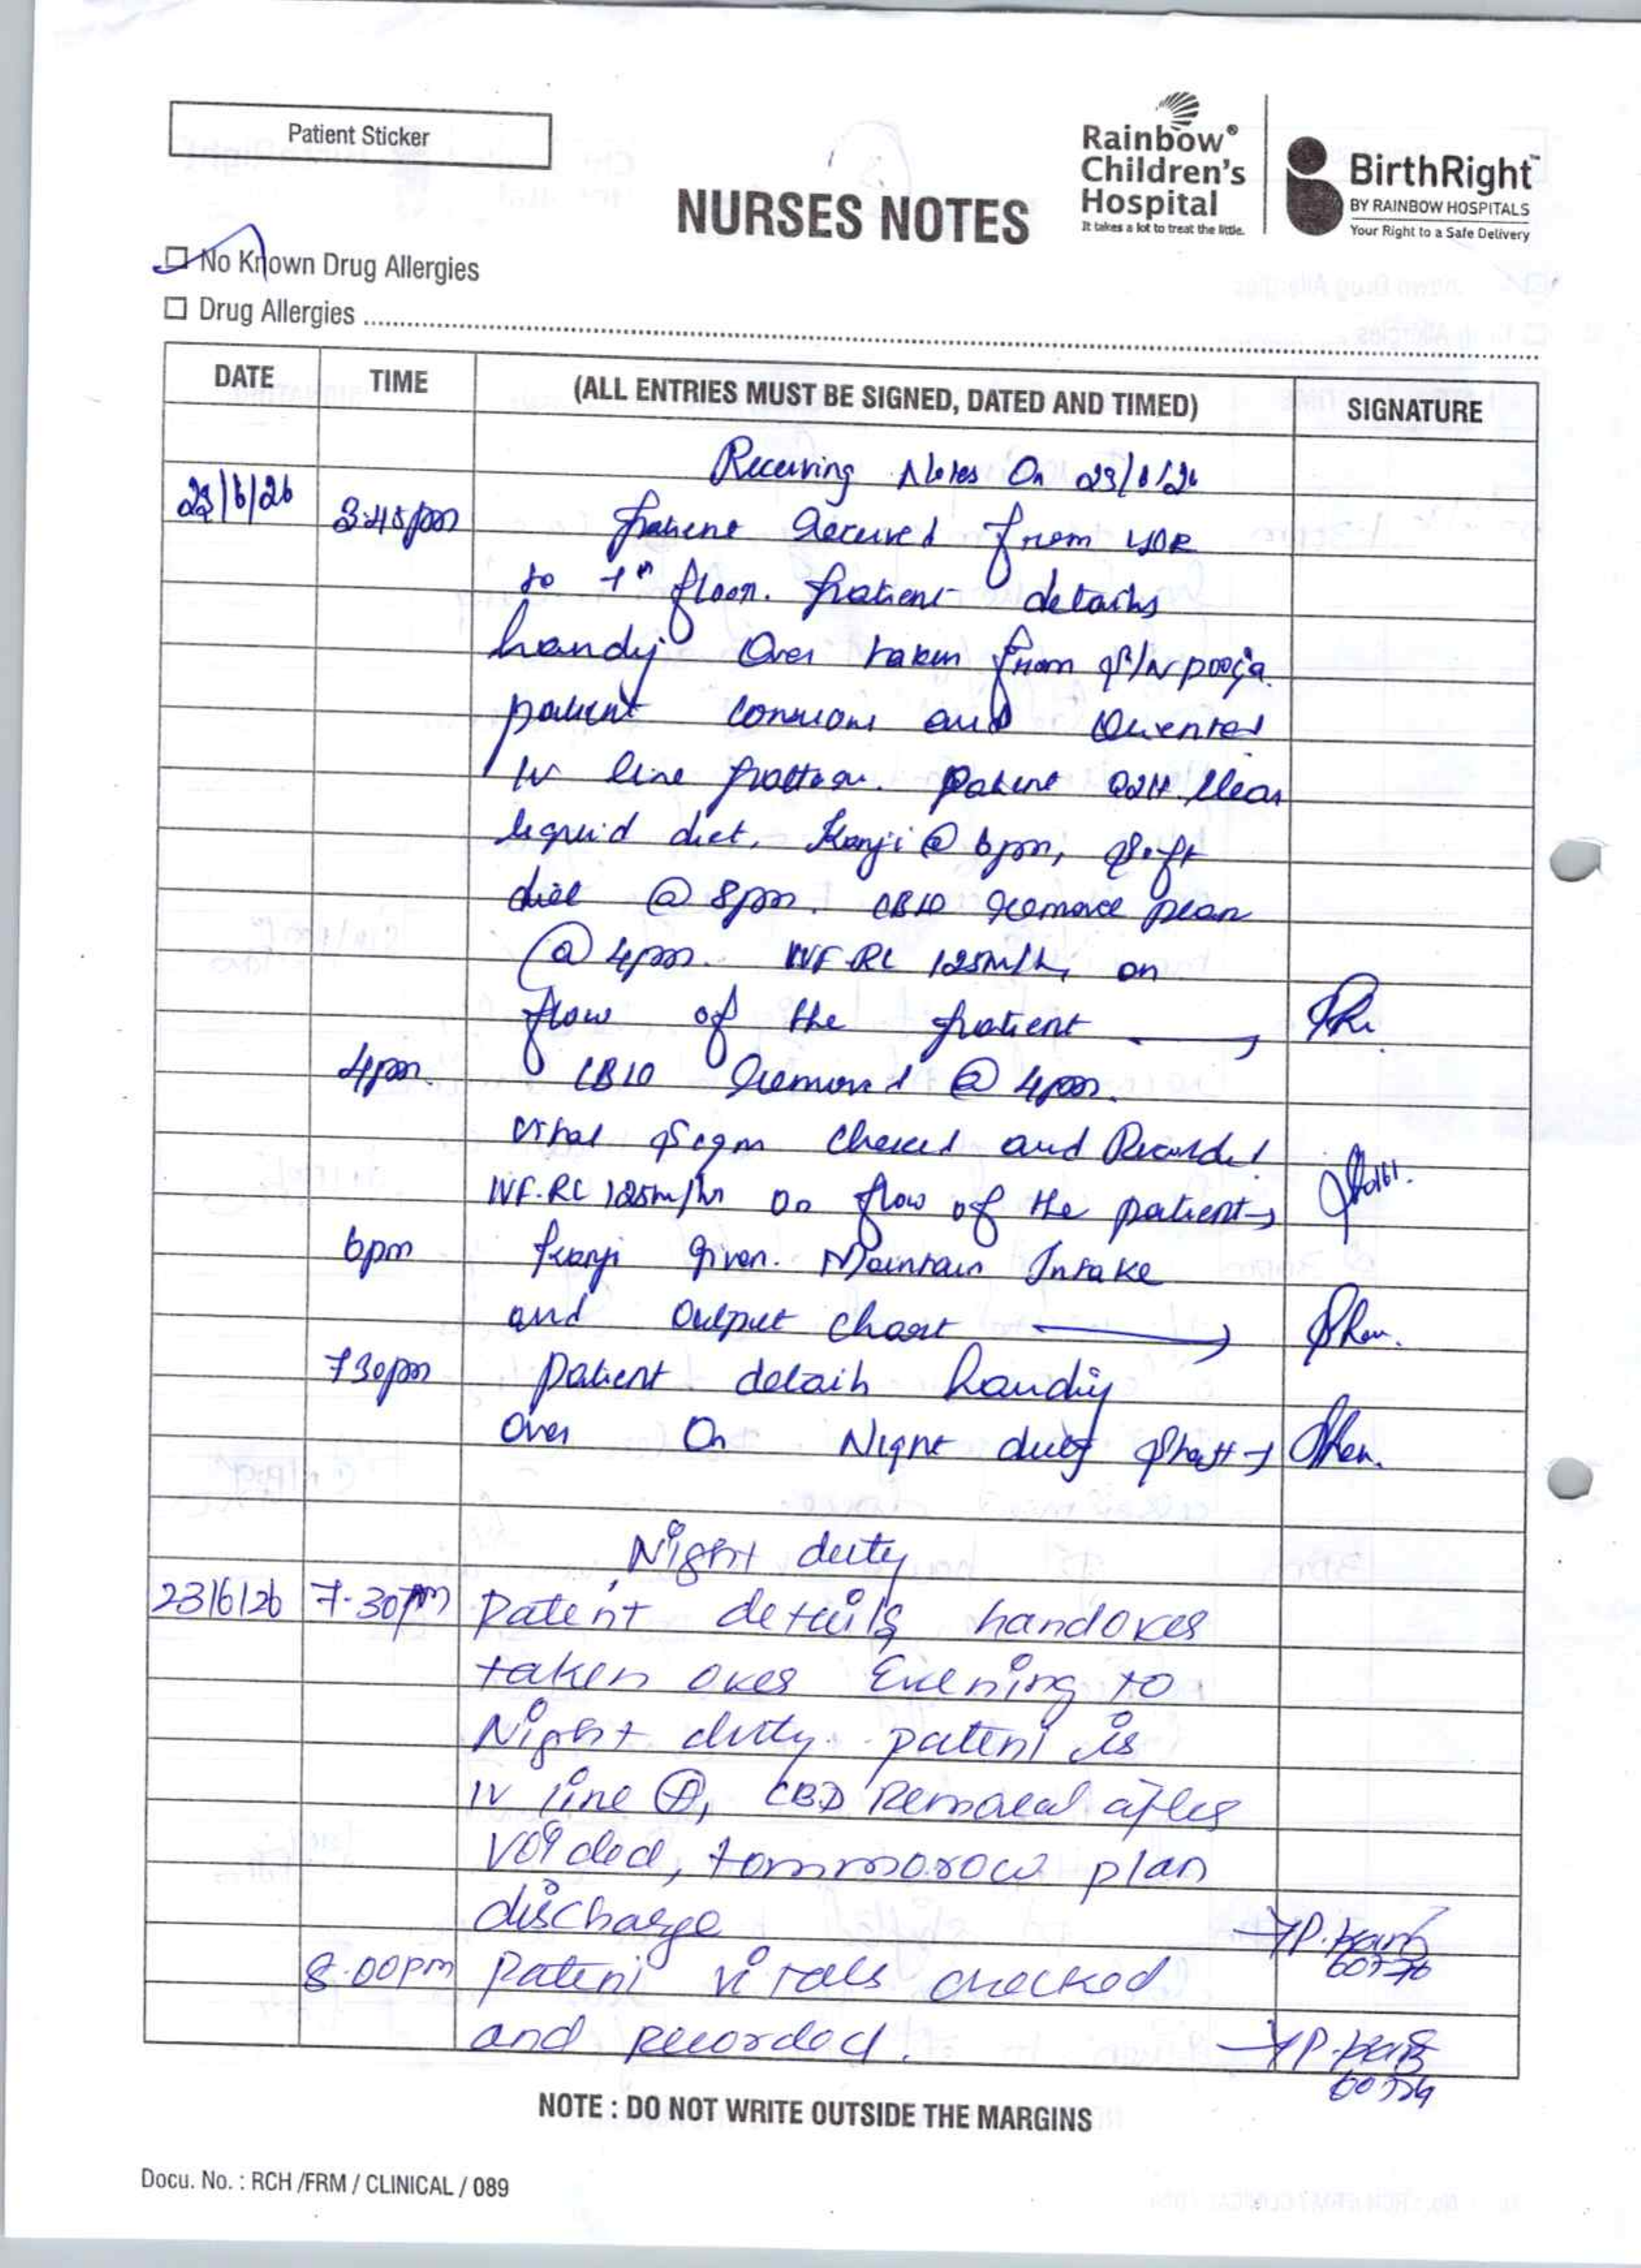 Patient Sticker
Rainbow®
Children's
Hospital
It takes a lot to treat the little.
BirthRight™
BY RAINBOW HOSPITALS
Your Right to a Safe Delivery
NURSES NOTES
No Known Drug Allergies
Drug Allergies
DATE TIME (ALL ENTRIES MUST BE SIGNED, DATED AND TIMED) SIGNATURE
Receiving Notes On 23/6/26
23/6/26 3:45pm patient received from
to 1st floor. patient details
handy over taken from S/N pooja.
patient conscious and Oriented
IV line patton. patient clear
liquid diet, Kanji @ 6pm, soft
diet @ 8pm. CBD remove plan
@ 4pm. IVF-RL 125ml/hr on
flow of the patient
4pm. CBD Removed @ 4pm.
vital sign checked and Recorded
IVF-RL 125ml/hr On flow of the patient
6pm kanji given. Maintain Intake
and Output chart
7 30pm patient detaih handiy
over On Night duty staff
Night duty
23/6/26 7.30pm patent details handover
taken over Evening to
Night duty. patent is
IV line P, CBD Removal after
voided, tommorow plan
discharge P.
8.00pm patent vitals checked
and recorded. P.
NOTE : DO NOT WRITE OUTSIDE THE MARGINS
Docu. No. : RCH /FRM / CLINICAL / 089